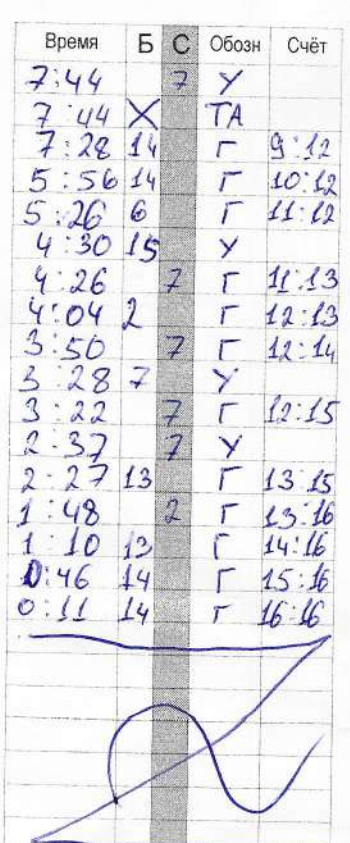 Время Б С Обозн Счёт
7:44 7 У
7:44 X ТА
7:28 14 Г 9:12
5:56 14 Г 10:12
5:26 6 Г 11:12
4:30 15 У
4:26 7 Г 11:13
4:04 2 Г 12:13
3:50 7 Г 12:14
3:28 7 У
3:22 7 Г 12:15
2:37 7 У
2:27 13 Г 13:15
1:48 2 Г 13:16
1:10 13 Г 14:16
0:46 14 Г 15:16
0:11 14 Г 16:16